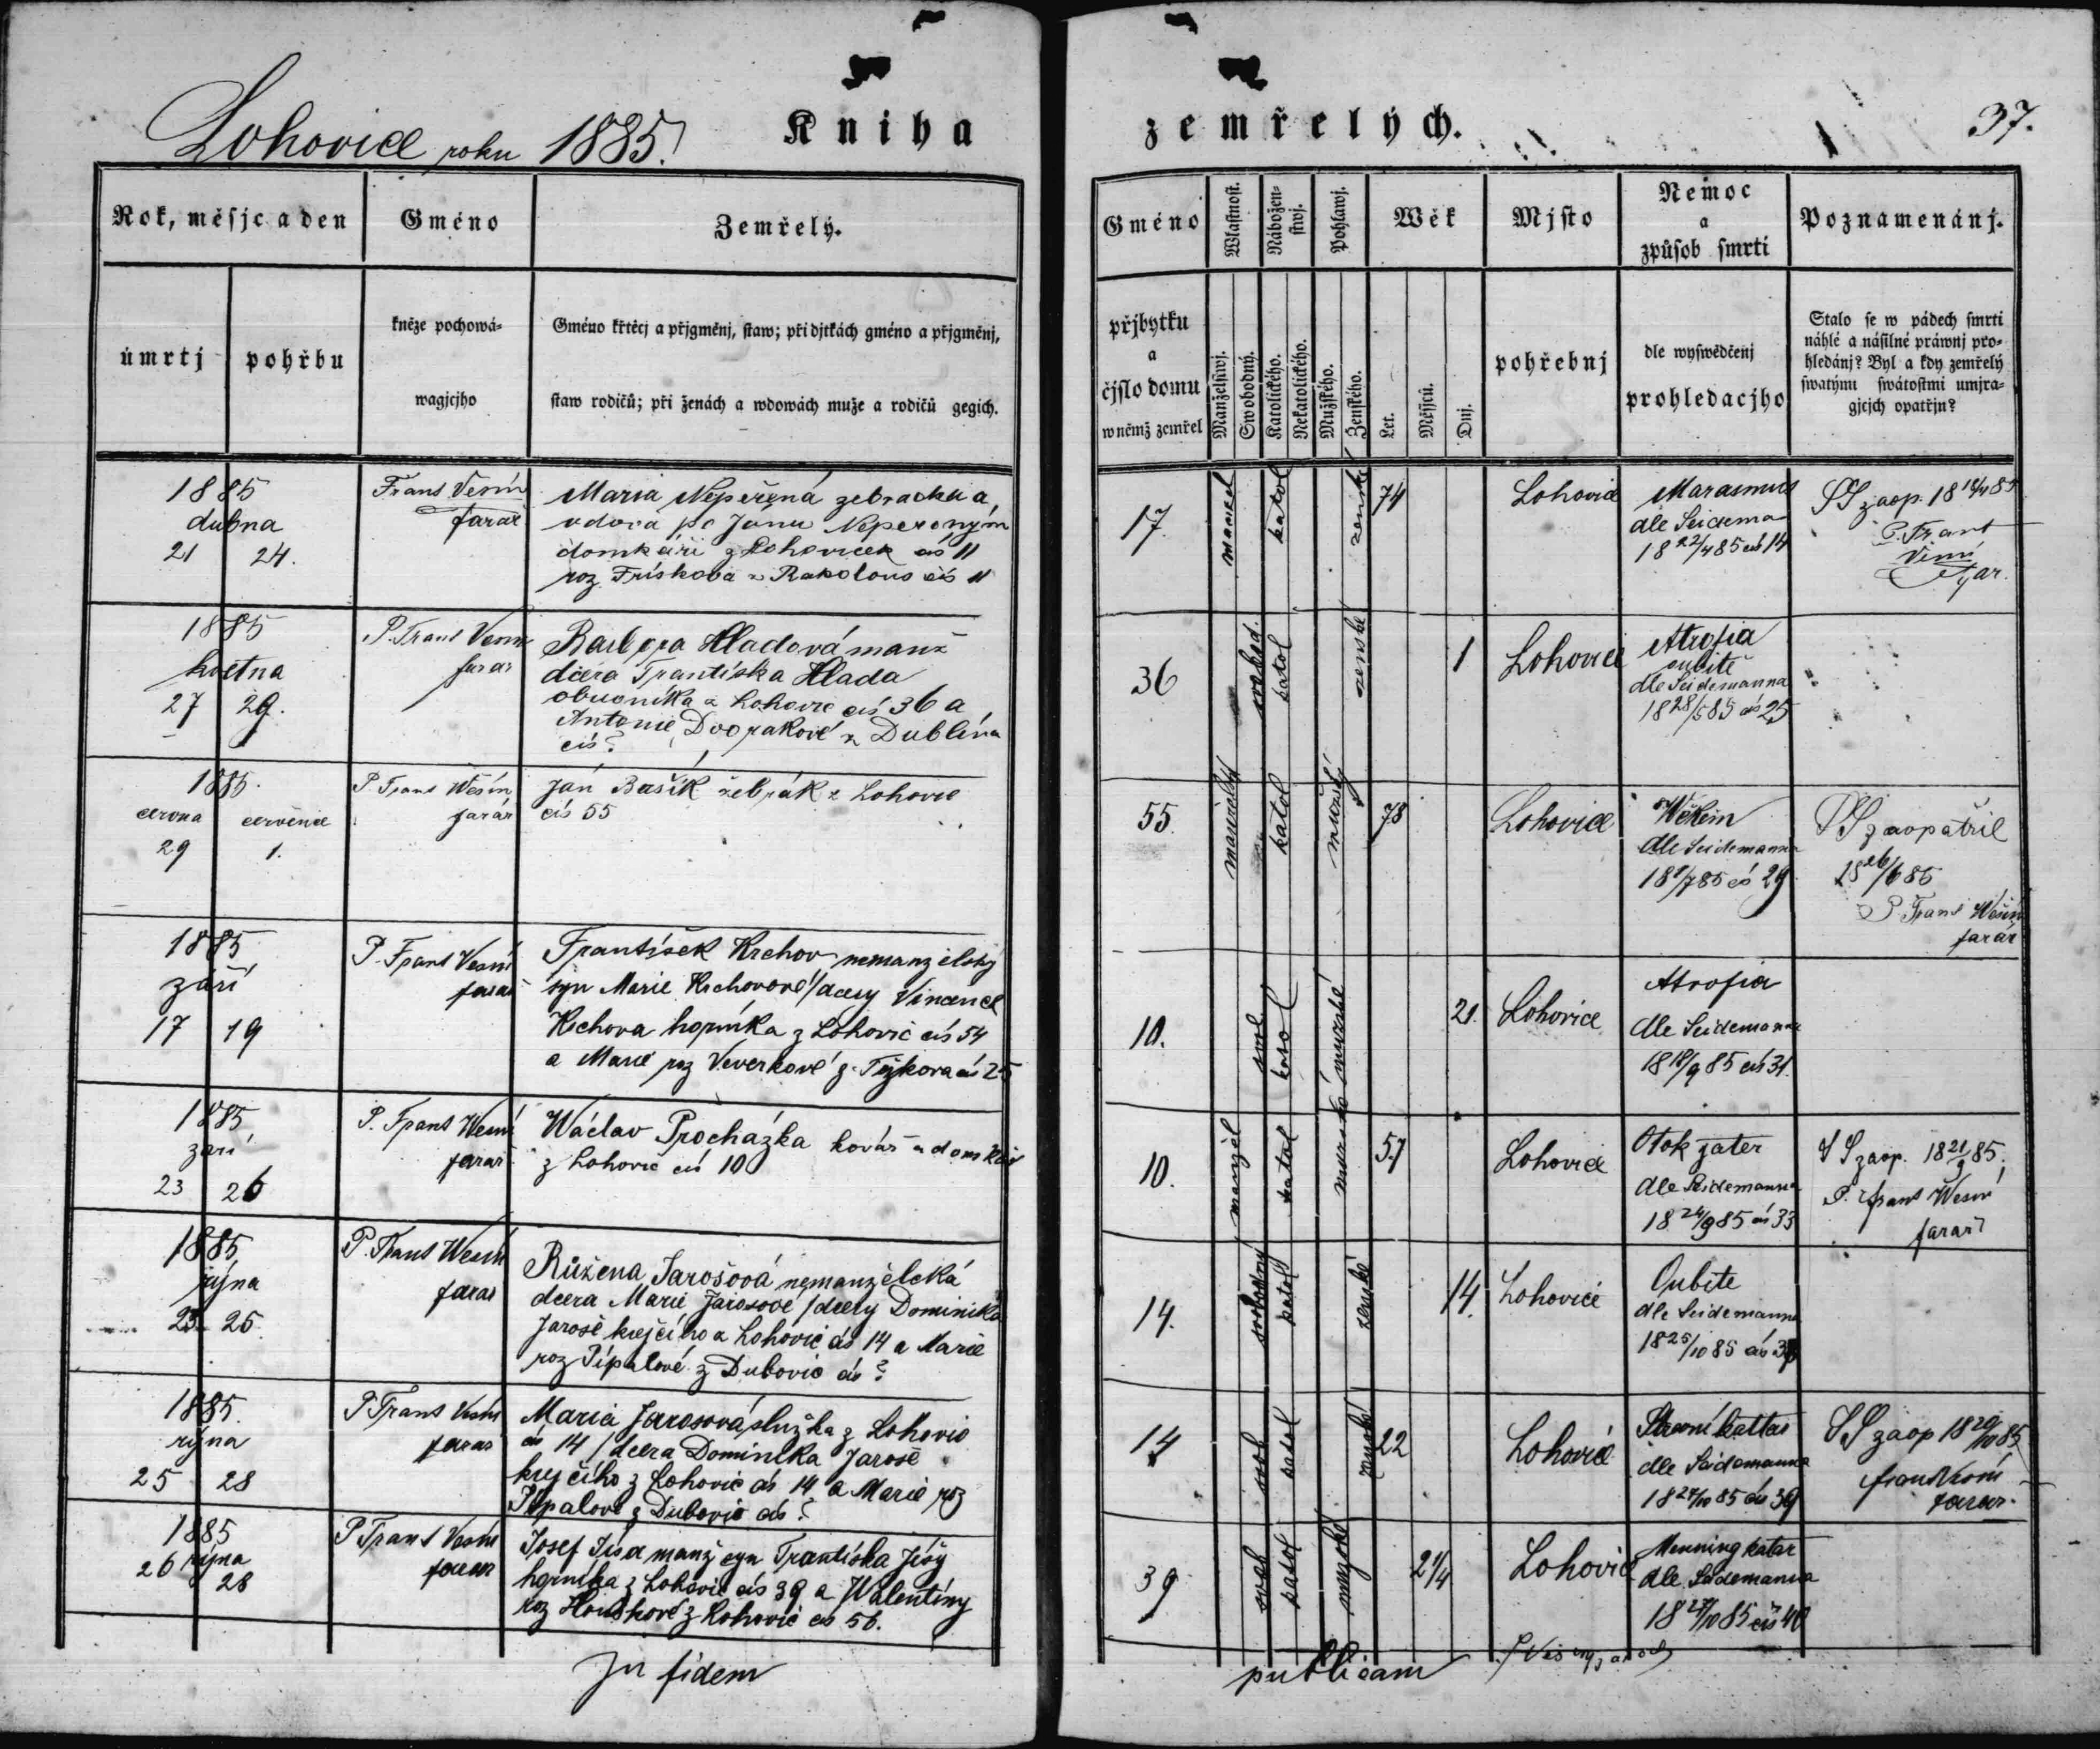 Lohovice roku 1885.
Kniha
zemřelých.
37.
Rok, měsjc a den
Gméno
Zemřelý.
úmrtj
pohřbu
kněze pochowá-
wagjcjho
Gméno křtěcj a přjgměnj, staw; při djtkách gméno a přjgměnj,
staw rodičů; při ženách a wdowách muže a rodičů gegich.
Gméno
přjbytku
a
čjslo domu
w němž zemřel
Wlastnost.
Manželstwj.
Swobodný.
Nábožen-
stwj.
Katolického.
Nekatolického.
Pohlawj.
Mužského.
Ženského.
Wěk
Let.
Měsjců.
Dnj.
Mjsto
pohřebnj
Nemoc
a
způsob smrti
dle wyswědčenj
prohledacjho
Poznamenánj.
Stalo se w pádech smrti
náhlé a násilné práwnj pro-
hledánj? Byl a kdy zemřelý
swatými swátostmi umjra-
gjcjch opatřjn?
1885
dubna
21 24.
Frans Vesín
farař
Maria Nepeřená žebračka a
vdova po Janu Nepereným
domkáři z Lohoviček čís 11
roz Frískova z Rakolous čís 11
17. manžel katol ženské 74
Lohovice
Marasmus
dle Seidema
18 22/4 85 čís 14
SS zaop. 18 85
P. Frant
Vesín
far.
1885
května
27 29.
P. Frans Vesín
farar
Barbora Hladová manž
dcera Františka Hlada
obuvníka z Lohovic čís 36 a
Antonie Dvorakové z Dublína
čís?
36 svobod. katol ženské 1
Lohovice
Atrofia
oubitě
dle Seidemanna
18 28/5 85 čís 25
1885.
června července
29 1.
P. Frans Wěsín
farár
Ján Bašík žebrák z Lohovic
čís 55
55 manželský katol mužský 78
Lohovice
Wěkem
dle Seidemanna
18 1/7 85 čís 29
SS zaopatřil
18 26/6 85
P. Frans Wěsín
farár
1885
září
17 19
P. Frans Vesín
farař
František Krchov nemanželský
syn Marie Krchovové / dcery Vincence
Krchova horníka z Lohovic čís 54
a Marie roz Veverkové z Týkova čís 25
10. svob katol mužské 21.
Lohovice
Atrofia
dle Seidemanna
18 18/9 85 čís 31.
1885
září
23 26
P. Frans Wesín
farař
Wáclav Procházka kovář a domkář
z Lohovic čís 10
10. manžel katol mužské 57
Lohovice
Otok jater
dle Seidemanna
18 24/9 85 čís 33
SS zaop. 18 21/9 85;
P. Frans Wesín
farař
1885
října
23 25.
P. Frans Wesín
farar
Růžena Jarošová nemanželská
dcera Marie Jarosové / dcery Dominika
Jaroše krejčího z Lohovic čís 14 a Marie
roz Pípalové z Dubovic čís?
14. svobodný katol ženské 14.
Lohovice
Oubite
dle Seidemanna
18 25/10 85 čís
1885.
října
25 28
P Frans Vesín
farar
Maria Jarosová služka z Lohovic
čís 14 / dcera Dominika Jaroše
krejčího z Lohovic čís 14 a Marie roz
Pípalové z Dubovic čís?
14 svob katol ženské 22
Lohovice
dle Seidemanna
18 27/10 85 čís 39
SS zaop 18 20/10 85
frans Vesín
farar.
1885
26 října
28
P Frans Vesín
farar
Josef Jísa manž syn Františka Jísy
horníka z Lohovic čís 39 a Walentíny
roz Houškové z Lohovic čís 56.
39 svob katol mužské 2 1/4
Lohovice
Mening katar
dle Seidemanna
18 27/10 85 čís 40
In fidem
publicam